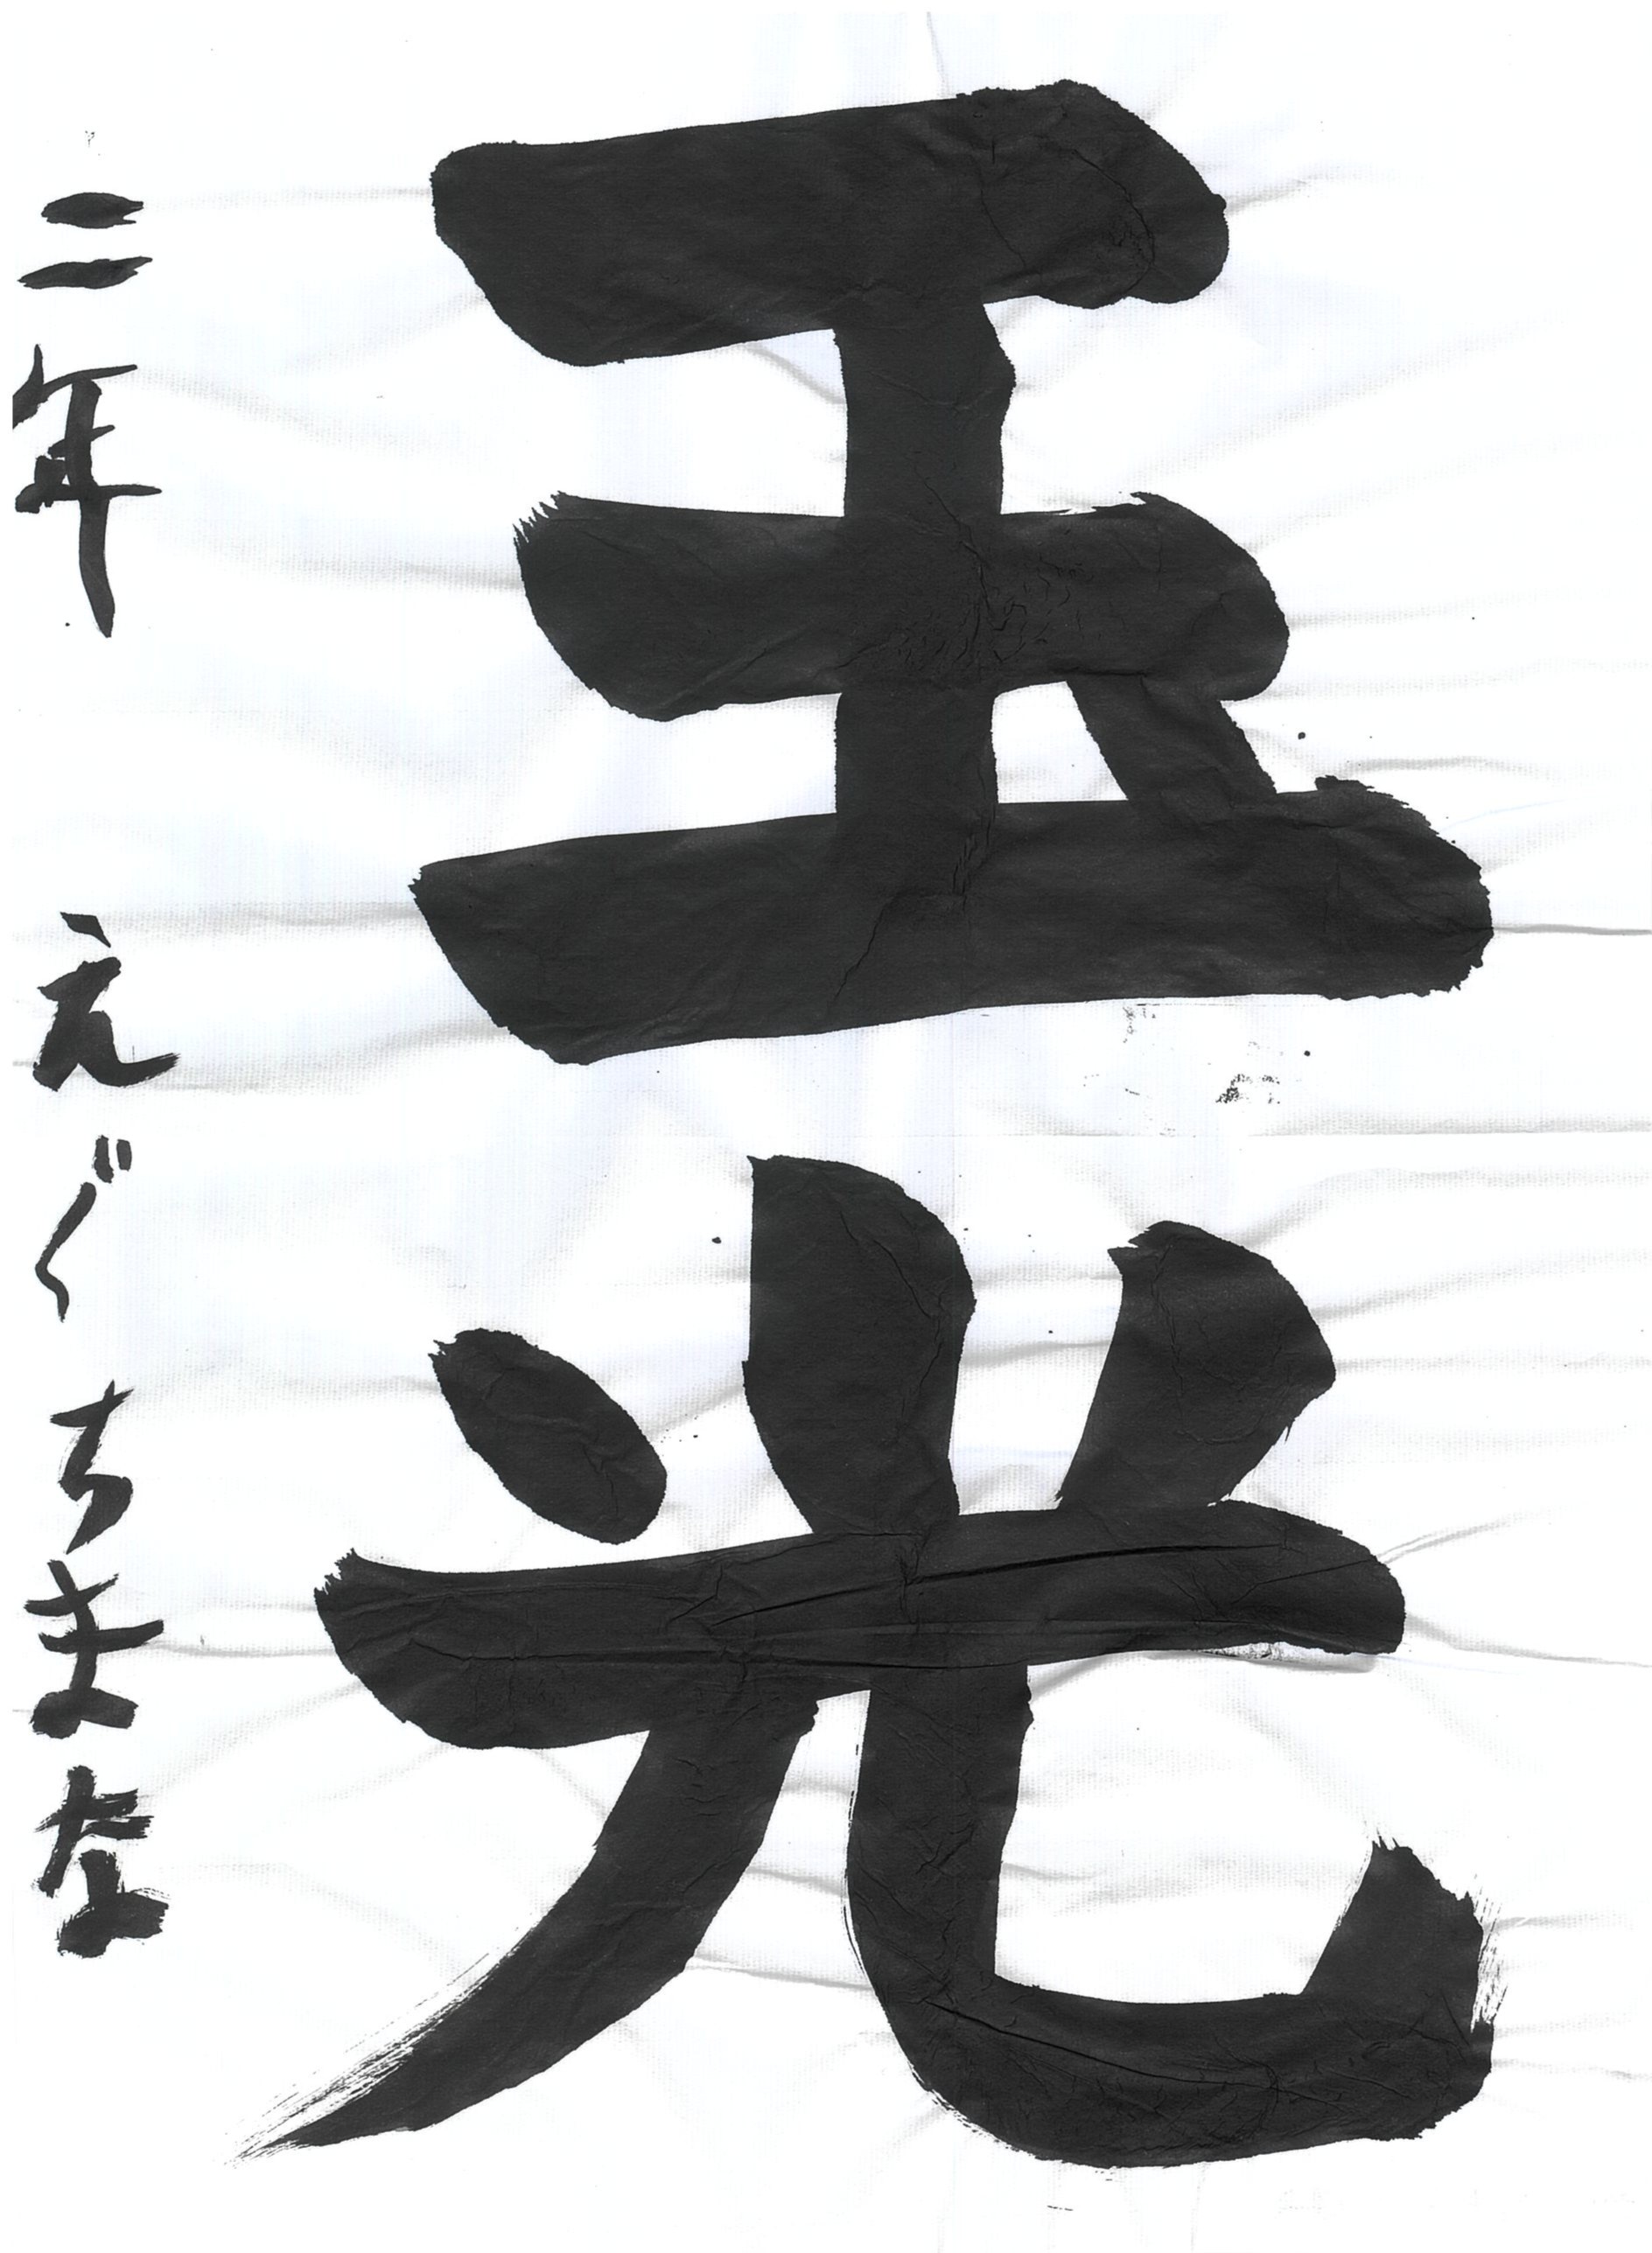 玉光
二年 えぐちまな